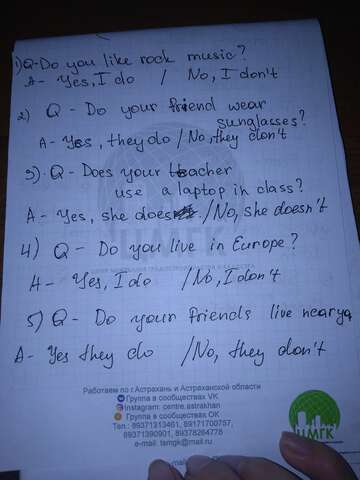 1) Q-Do you like rock music?
A- Yes, I do / No, I don't
2) Q - Do your friend wear
sunglasses?
A- Yes, they do / No, they don't
3). Q - Does your teacher
use a laptop in class?
A- Yes, she does / No, she doesn't
4) Q - Do you live in Europe?
A- Yes, I do / No, I don't
5) Q - Do your friends live nearya
A- Yes they do / No, they don't
ЦМГК
Работаем по г.Астрахань и Астраханской области
Группа в сообществах VK
Instagram: centre.astrakhan
Группа в сообществах ОК
Тел.: 89371313461, 89171700757,
89371390901, 89378264778
e-mail: tamgk@mail.ru
ЦМГК